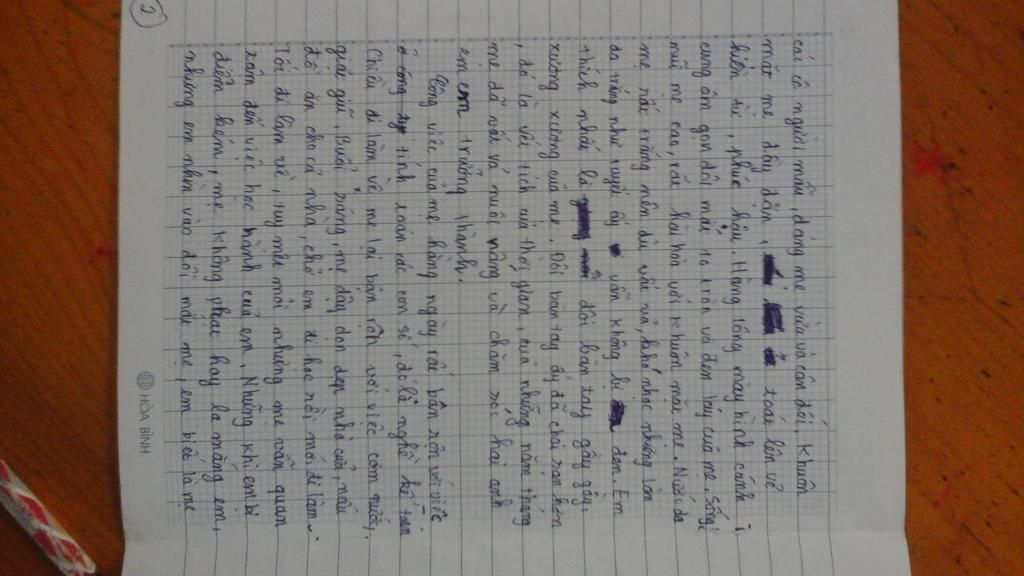 2
cái có người mẫu, dáng mẹ vừa và cân đối. Khuôn
mặt mẹ đầy đặn, toát lên vẻ
hiền từ, phúc hậu. Hàng lông mày hình cánh
cung ôm gọn đôi mắt to tròn và đen láy của mẹ. Sống
mũi mẹ cao, rất hài hoà với khuôn mặt mẹ. Nước da
mẹ rất trắng nên dù vất vả, khó nhọc nhưng làn
da trắng như tuyết ấy vẫn không bị đen. Em
thích nhất là đôi bàn tay gầy gầy,
xương xương của mẹ. Đôi bàn tay ấy đã chai sạn hơn
, đó là vết tích của thời gian, của những năm tháng
mẹ đã vất vả nuôi nấng và chăm sóc hai anh
em em trưởng thành.
Công việc của mẹ hàng ngày rất bận rộn với việc
tính toán các con số, đó là nghề kế toán
Chiều đi làm về mẹ lại bận rộn với việc cơm nước,
giặt giũ. Buổi sáng, mẹ dậy dọn dẹp nhà cửa, nấu
đồ ăn cho cả nhà, chở em đi học rồi mới đi làm.
Tối đi làm về, tuy mệt mỏi nhưng mẹ vẫn quan
tâm đến việc học hành của em. Những khi em bị
điểm kém, mẹ không phạt hay la mắng em,
nhưng em nhìn vào đôi mắt mẹ, em biết là mẹ
HÒA BÌNH